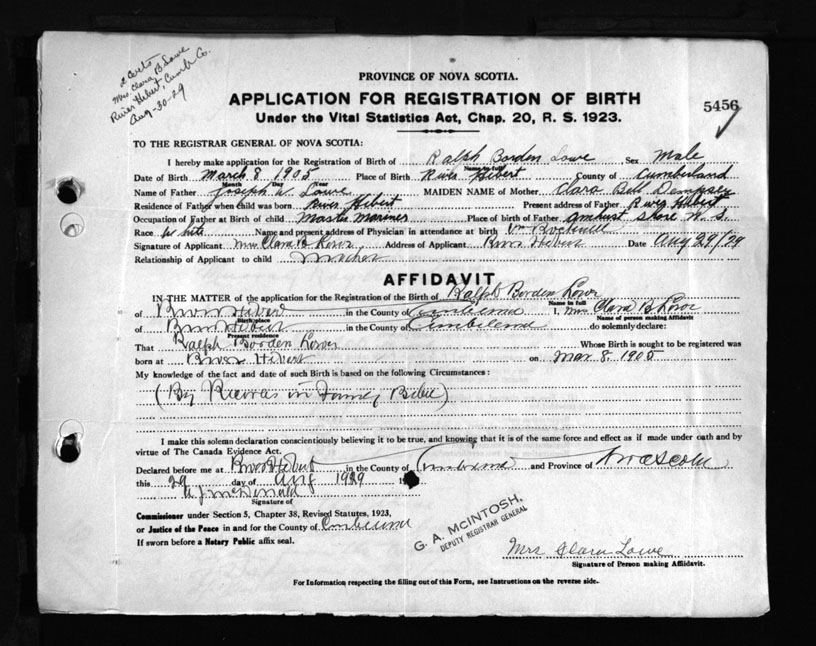 2 Certs
Mrs. Clara B Lowe
River Hebert, Cumb Co.
Aug-30-29
PROVINCE OF NOVA SCOTIA.
APPLICATION FOR REGISTRATION OF BIRTH
5456
Under the Vital Statistics Act, Chap. 20, R. S. 1923.
TO THE REGISTRAR GENERAL OF NOVA SCOTIA:
I hereby make application for the Registration of Birth of Ralph Borden Lowe Sex Male
Name in full
Date of Birth March 8 1905 Place of Birth River Hibert County of Cumberland
Month Day Year
Name of Father Joseph W. Lowe MAIDEN NAME of Mother Clara Bell Dempsey
Residence of Father when child was born River Hibert Present address of Father River Hibert
Occupation of Father at Birth of child Master Mariner Place of birth of Father Amhurst Shore N. S
Race White Name and present address of Physician in attendance at birth Rockwell
Signature of Applicant Mrs Clara B Lowe Address of Applicant River Hebert Date Aug 29/29
Relationship of Applicant to child Mother
AFFIDAVIT
IN THE MATTER of the application for the Registration of the Birth of Ralph Borden Lowe
Name in full
of River Hebert in the County of Cumberland I, Mrs Clara B Lowe
Birth place Name of person making Affidavit
of River Hebert in the County of Cumberland do solemnly declare:
Present residence
That Ralph Borden Lowe Whose Birth is sought to be registered was
born at River Hebert on Mar 8 1905
My knowledge of the fact and date of such Birth is based on the following Circumstances:
(By Records in Family Bible)
I make this solemn declaration conscientiously believing it to be true, and knowing that it is of the same force and effect as if made under oath and by
virtue of The Canada Evidence Act.
Declared before me at River Hebert in the County of Cumberland and Province of Nova Scotia
this 29 day of Aug 1929
A J McDonald
Signature of
Commissioner under Section 5, Chapter 38, Revised Statutes, 1923,
or Justice of the Peace in and for the County of Cumberland
If sworn before a Notary Public affix seal.
G. A. MCINTOSH,
DEPUTY REGISTRAR GENERAL
Mrs Clara Lowe
Signature of Person making Affidavit.
For Information respecting the filling out of this Form, see Instructions on the reverse side.